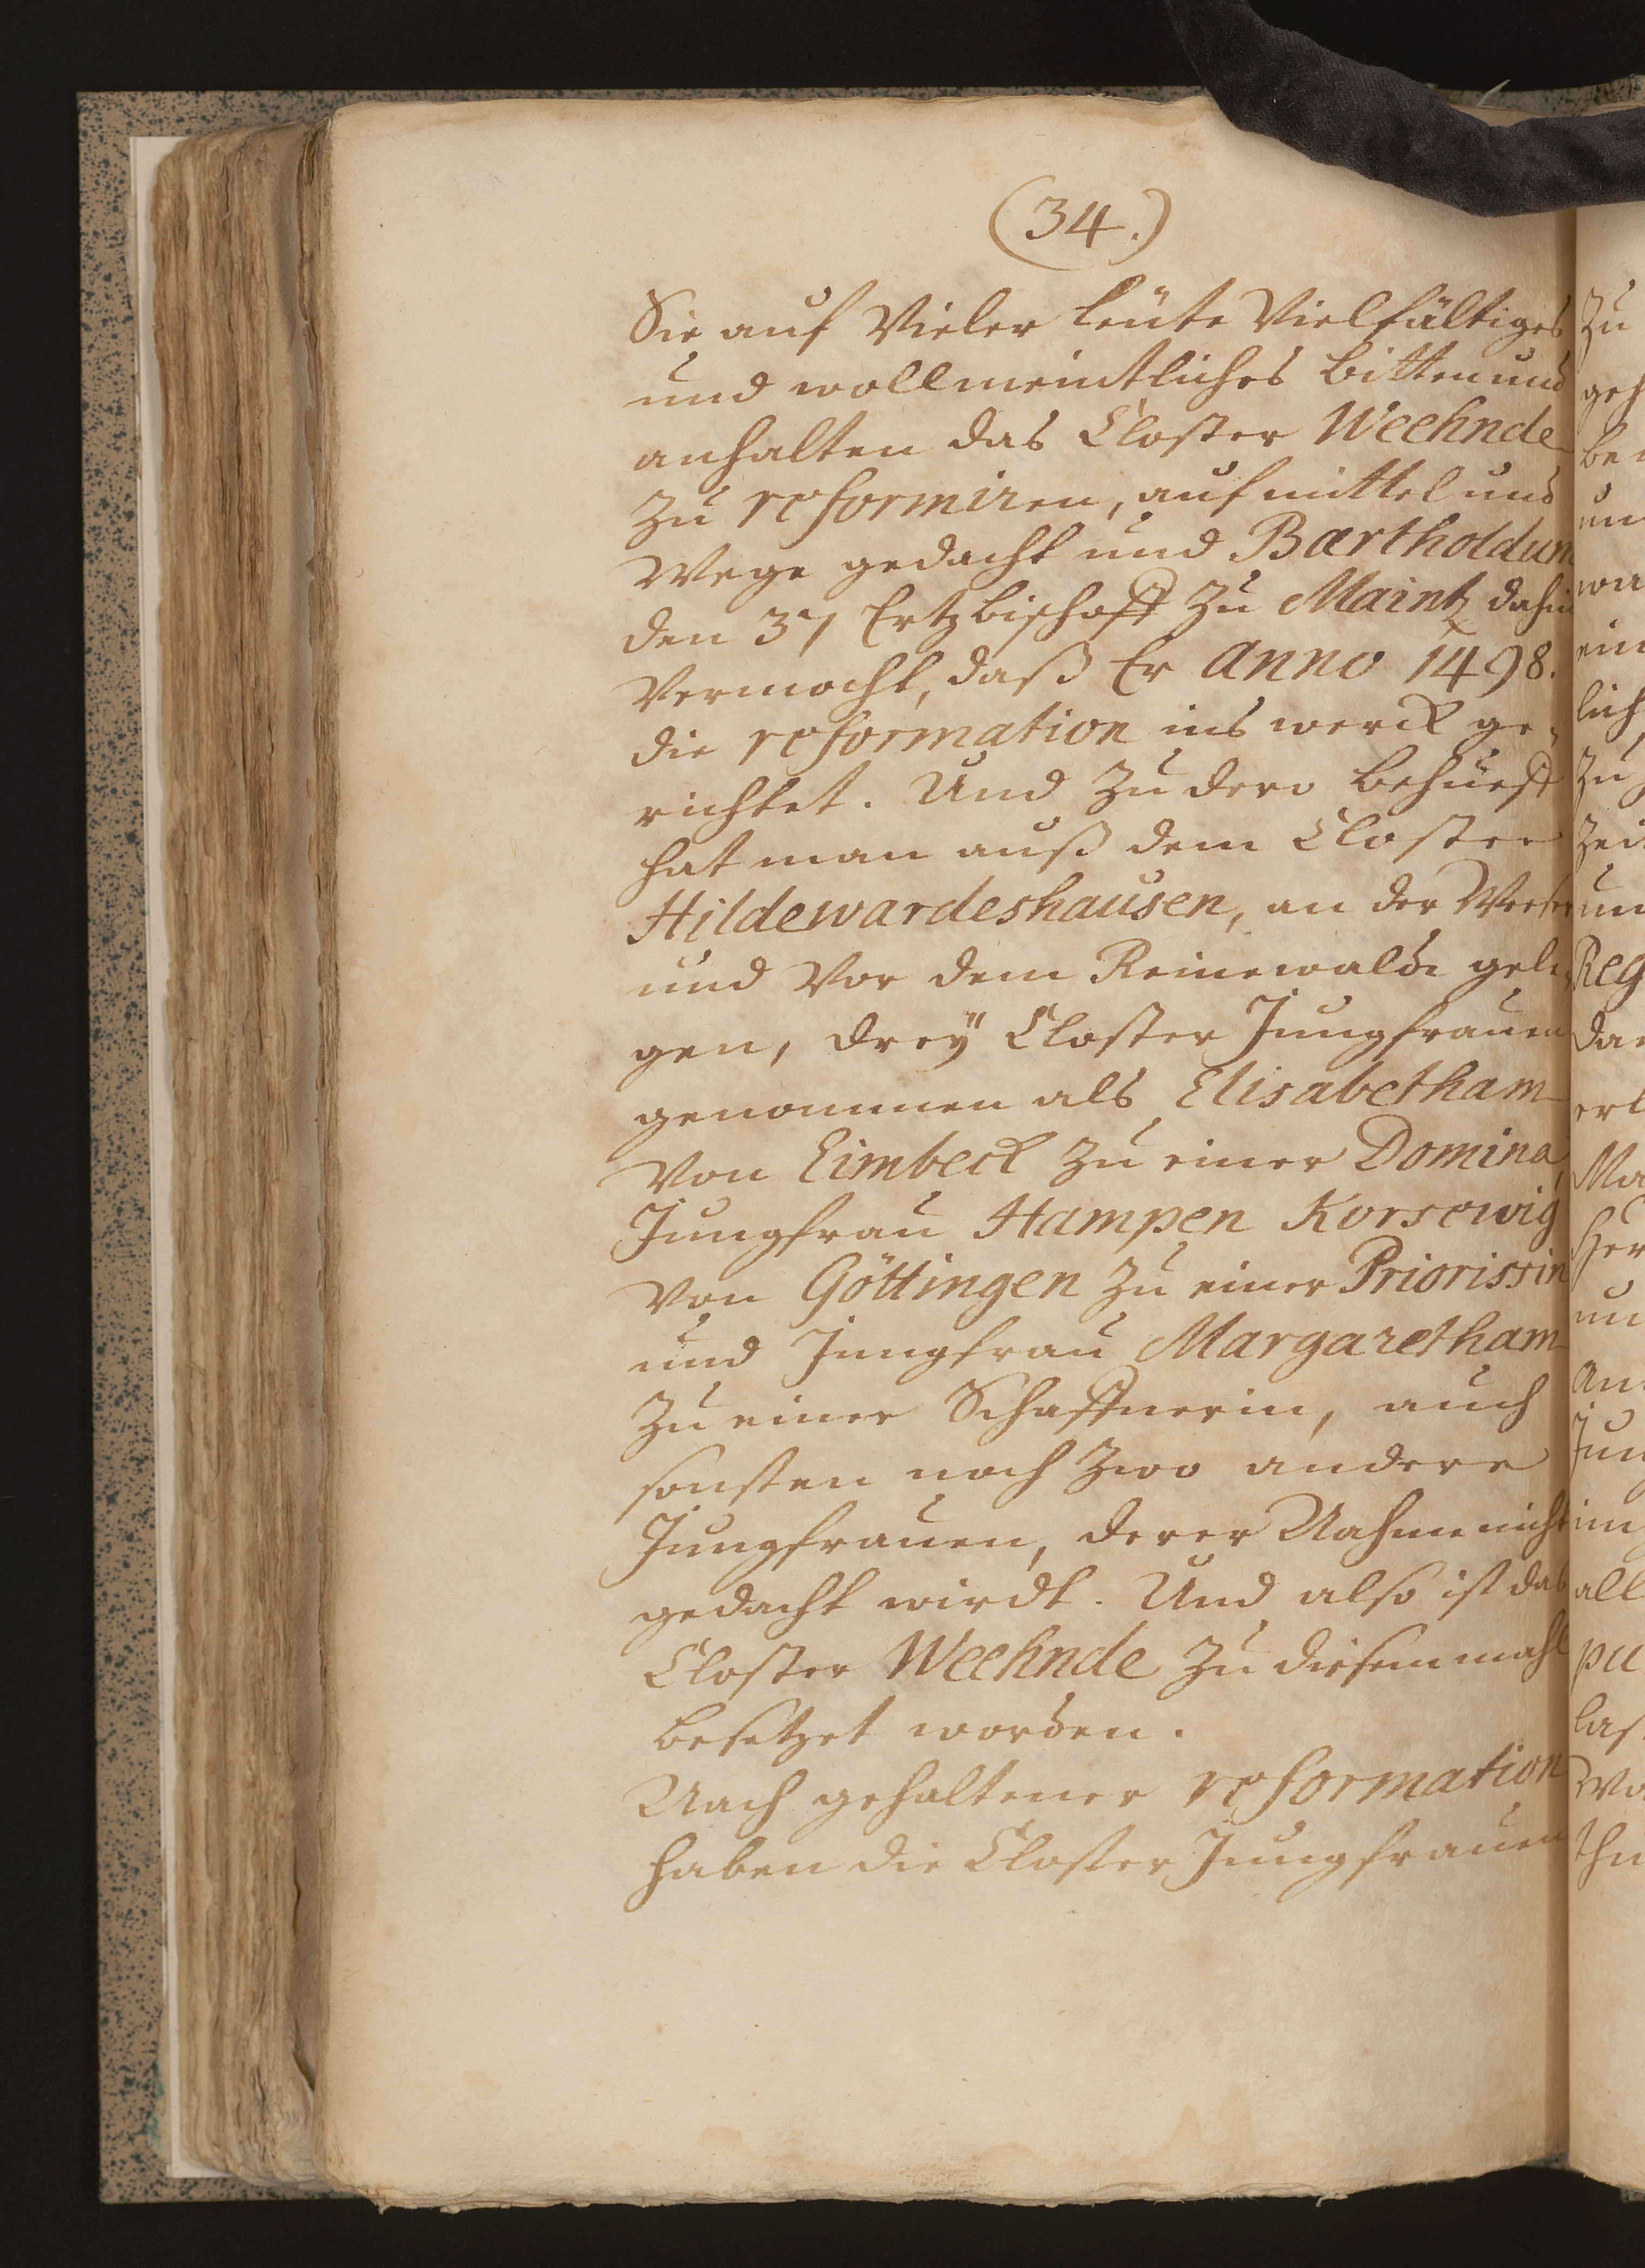 (34.)
Sie auf Vieler leüte Vielfältiges
und wollmeintliches bitten und
anhalten das Closter Weehnde
zu reformiren, auf mittel und
Wege gedacht und Bartholdum
den 37 Ertzbischoff zu Maintz dahin
Vermocht, daß Er Anno 1498.
die reformation ins werck ge-
richtet. Und zu dero behueff
hat man auß dem Closter
Hildewardeshausen, an der Weser
und Vor dem Reinewalde gele-
gen, drey Closter Jungfrauen
genommen als Elisabetham
Von Eimbeck zu einer Domina,
Jungfrau Hampen Korsewig
Von Göttingen zu einer Priorissin
und Jungfrau Margaretham
zu einer Schaffnerin, auch
sonsten noch zwo andere
Jungfrauen, derer Nahme nicht
gedacht wirdt. Und also ist das
Closter Weehnde zu diesem mahl
besetzet worden.
Nach gehaltener reformation
haben die Closter Jungfrauen